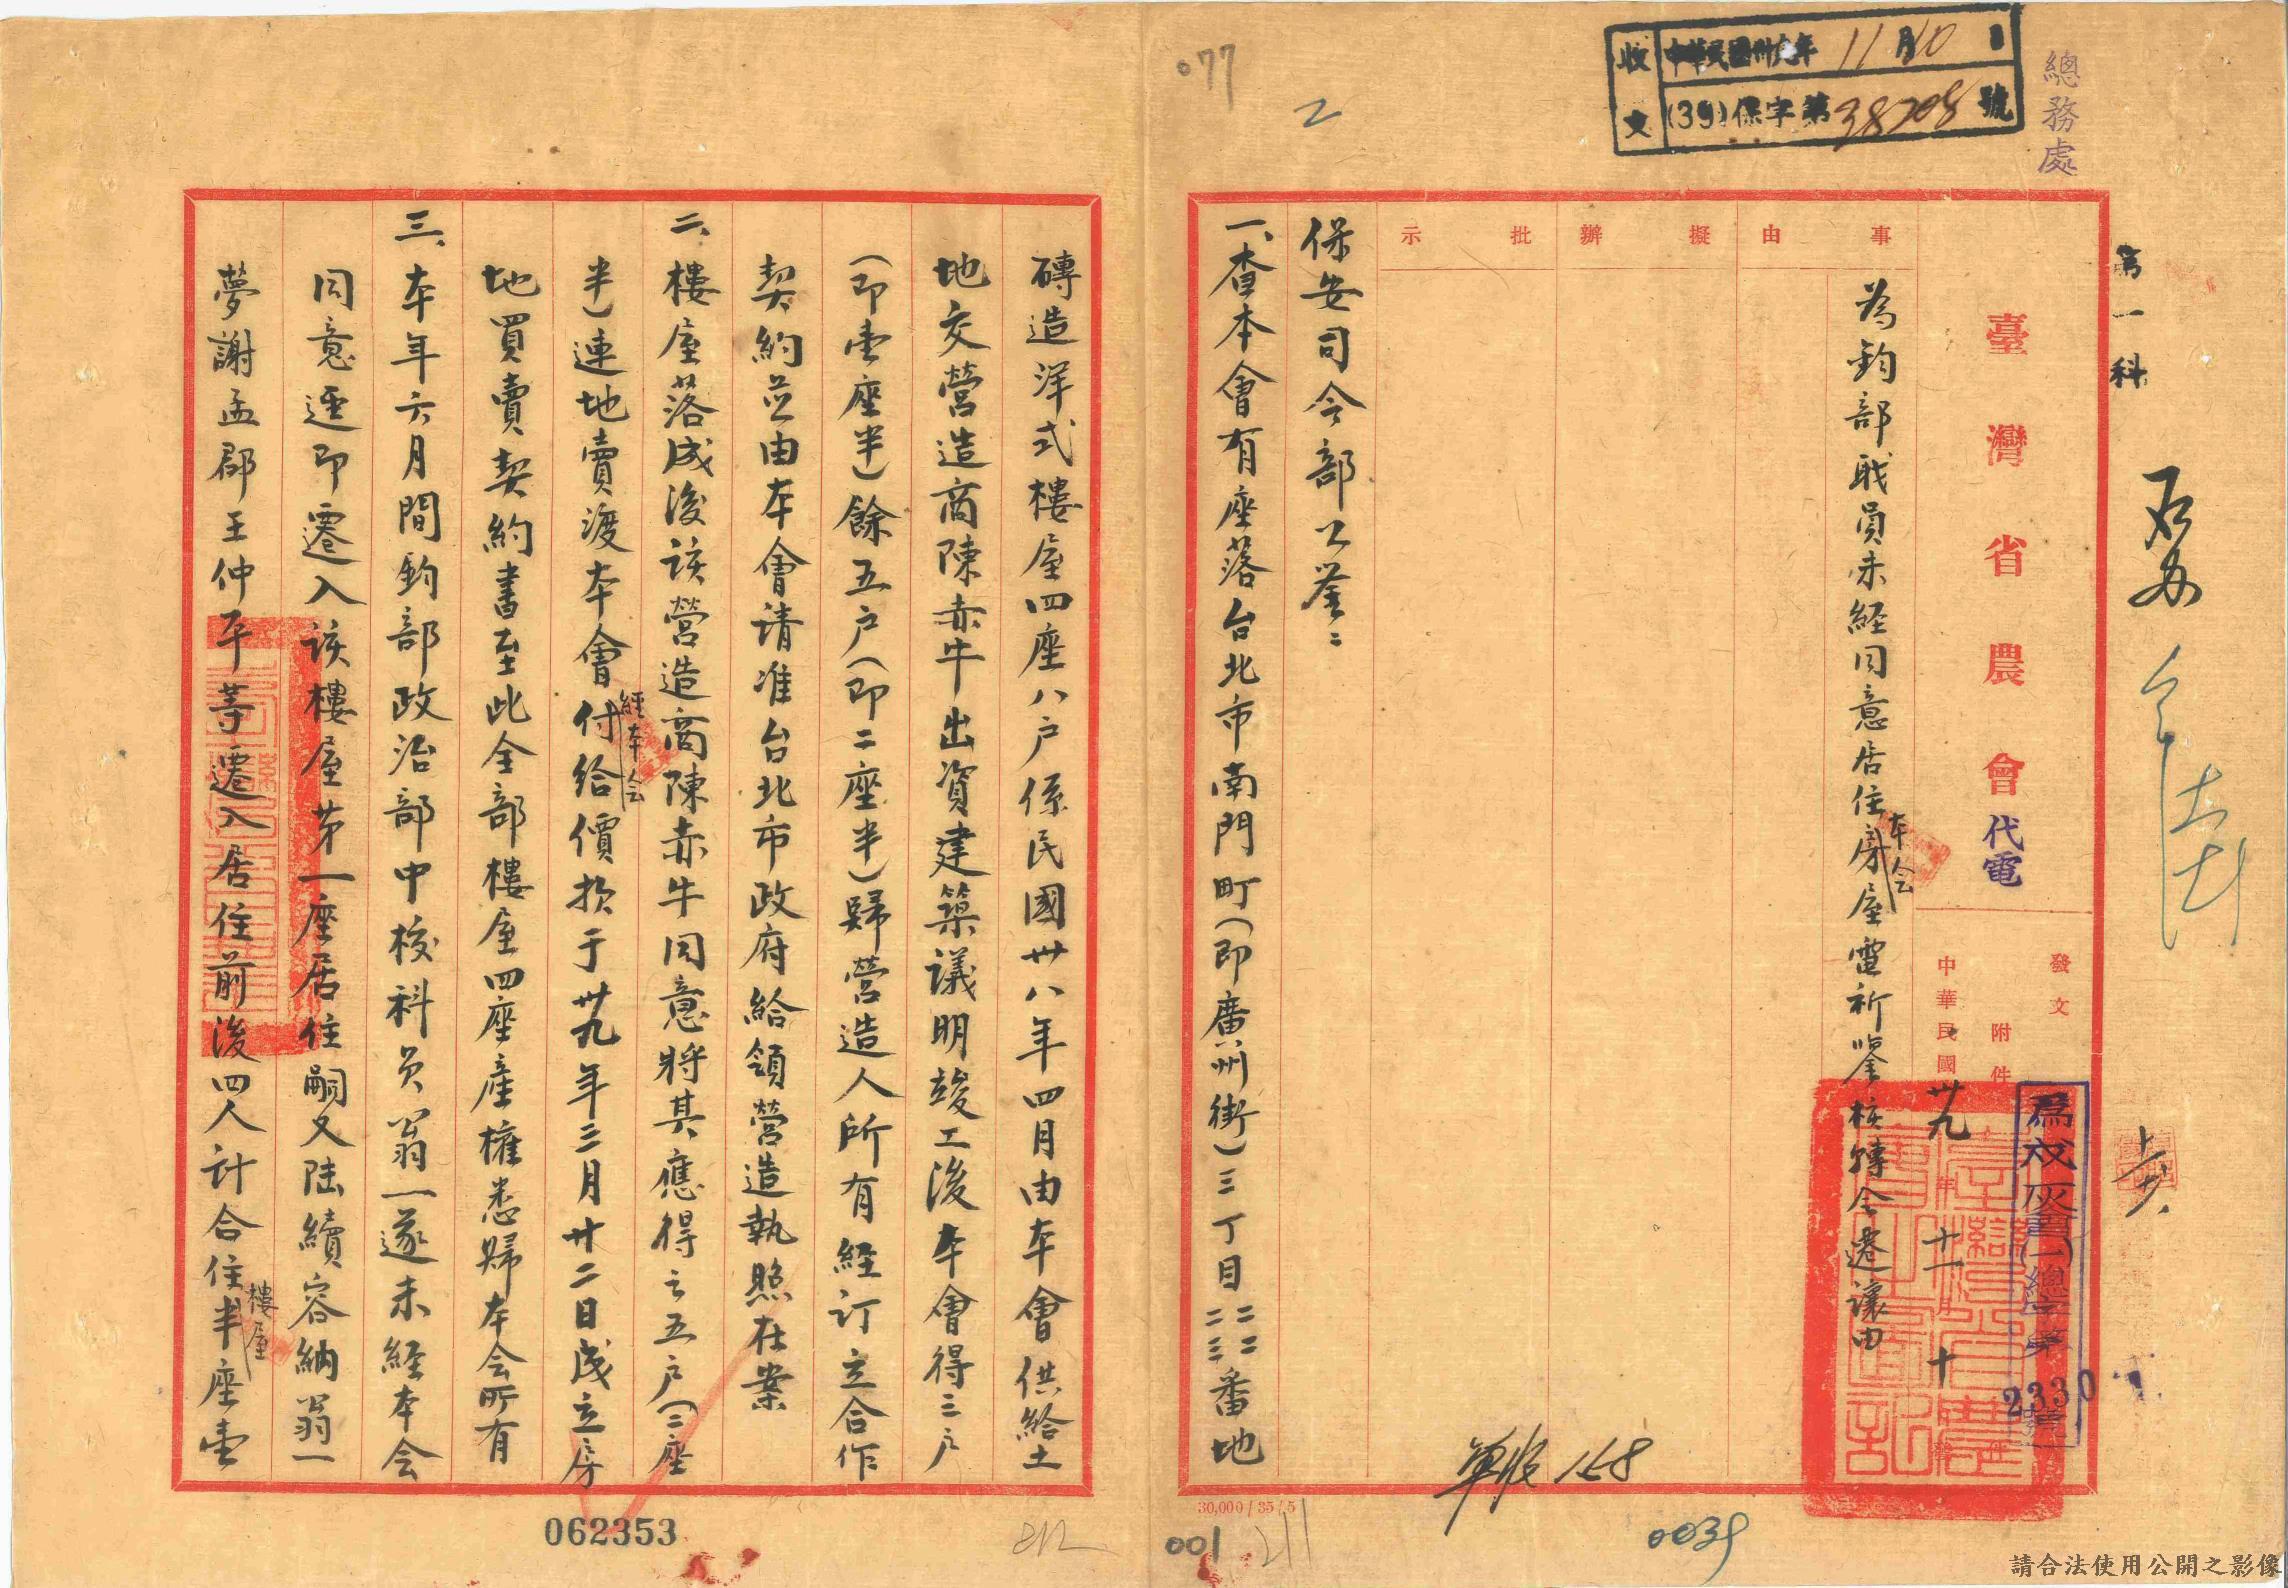 總務處
收文 中華民國卅九年11月10日
(39)保字第38708號
077
2
第一科
臺灣省農會代電
發文
附件
中華民國卅九年十一月十日
總字第2330號
事由
為鈞部職員未經同意居住本会房屋電祈鑒核轉令遷讓由
擬辦
批示
保安司令部公鑒：
一、查本會有座落台北市南門町（即廣州街）三丁目二二二三番地
磚造洋式樓屋四座八戶係民國卅八年四月由本會供給土
地交營造商陳赤牛出資建築議明竣工後本會得三戶
（即壹座半）餘五戶（即二座半）歸營造人所有経訂立合作
契約並由本會请准台北市政府給領營造執照在案
二、樓屋落成後该營造商陳赤牛同意將其應得之五戶（二座
半）連地賣渡本會經本会付給價款于卅九年三月廿二日成立房
地買賣契約書至此全部樓屋四座產權悉歸本会所有
三、本年六月間鈞部政治部中校科员翁一遂未経本会
同意逕即遷入该樓屋第一座居住嗣又陸續容納翁一
夢謝孟郡王仲平等遷入居住前後四人計合住樓屋半座壹
軍收 158
30,000/35/5
062353
212
001
211
0039
請合法使用公開之影像